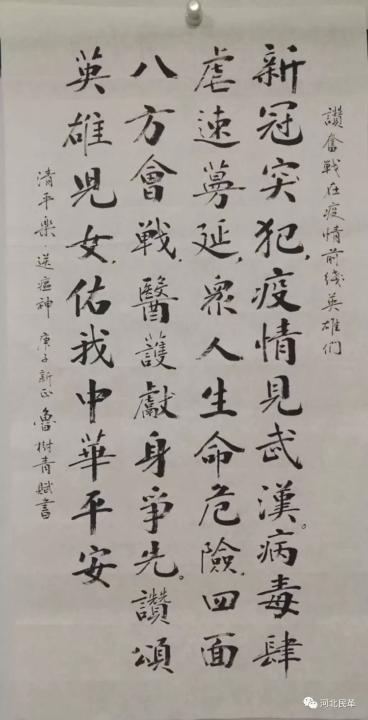 讚奮戰在疫情前綫英雄们
新冠突犯，疫情見武漢。病毒肆
虐速蔓延，衆人生命危險。四面
八方會戰，醫護獻身爭先。讚頌
英雄兒女，佑我中華平安
清平樂·送瘟神 庚子新正 魯樹青賦書
河北民革